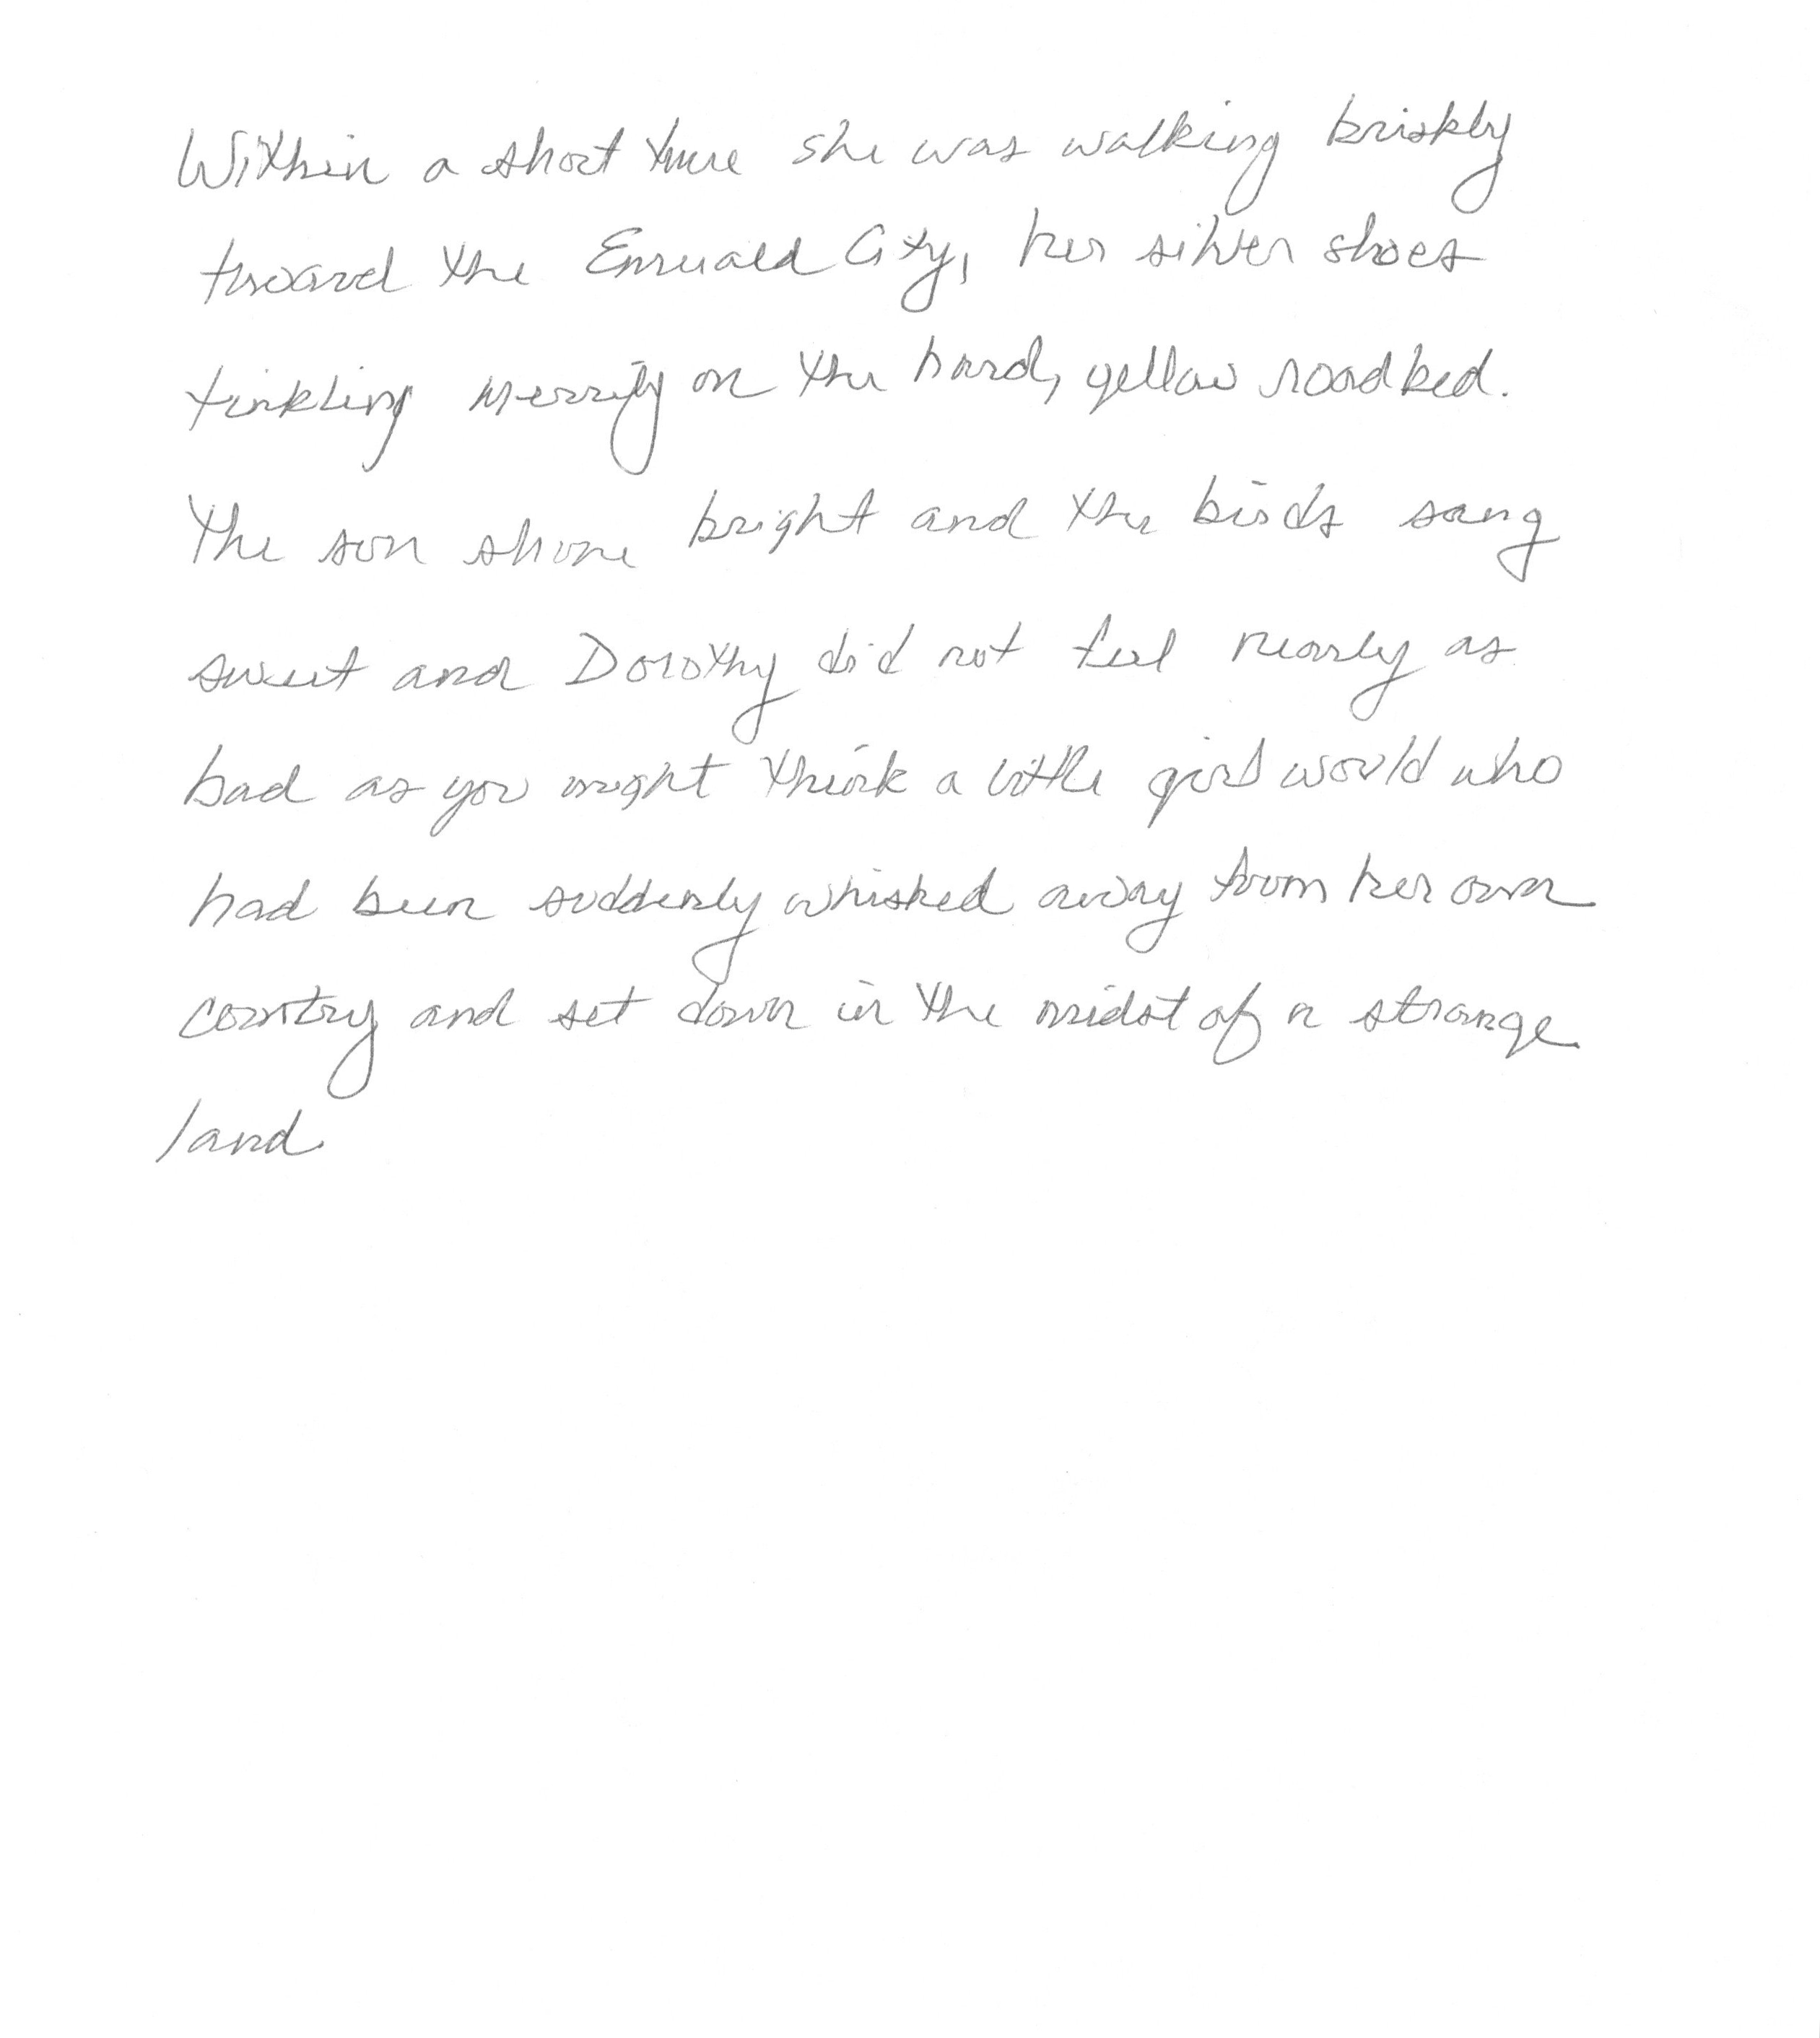 Within a short time she was walking briskly
toward the Emerald City, her silver shoes
tinkling merrily on the hard, yellow roadbed.
The sun shone bright and the birds sang
sweet and Dorothy did not feel nearly as
bad as you might think a little girl would who
had been suddenly whisked away from her own
country and set down in the midst of a strange
land